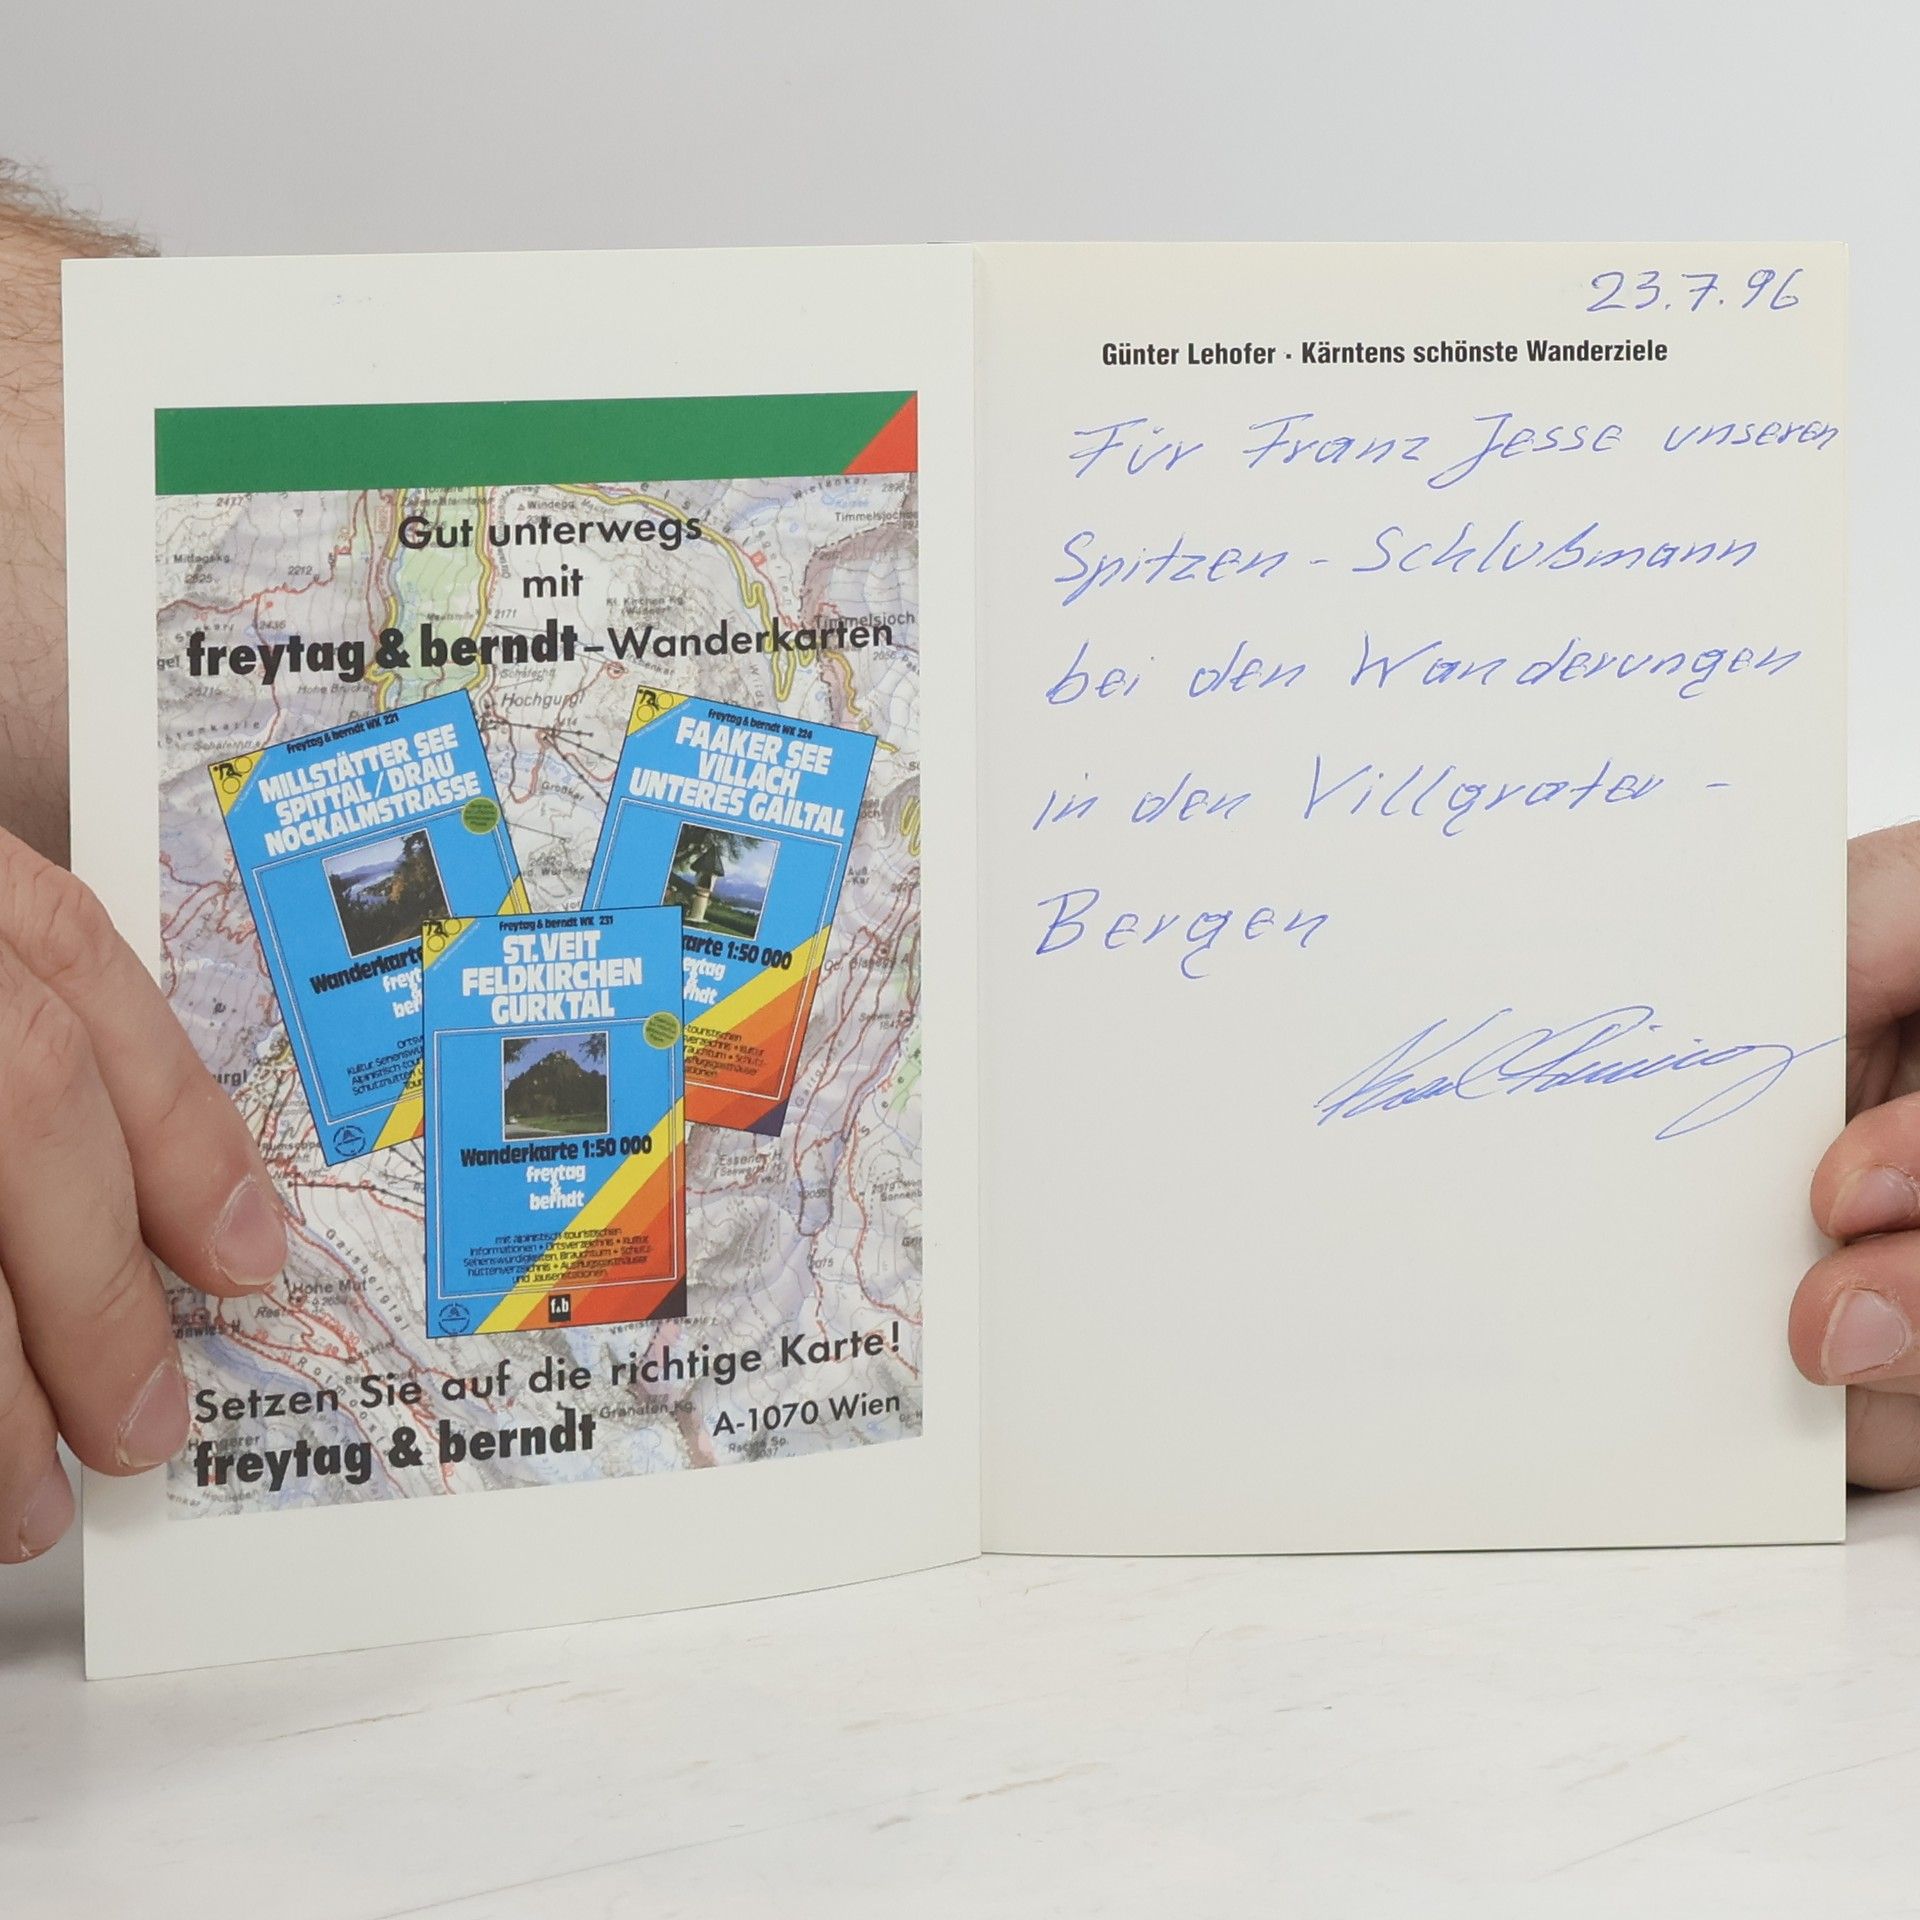 Gut unterwegs
mit
freytag & berndt-Wanderkarten
freytag & berndt WK 221
MILLSTÄTTER SEE
SPITTAL/DRAU
NOCKALMSTRASSE
Wanderkarte
freytag & berndt WK 224
FAAKER SEE
VILLACH
UNTERES GAILTAL
1:50 000
freytag & berndt WK 231
ST. VEIT
FELDKIRCHEN
GURKTAL
Wanderkarte 1:50 000
freytag
&
berndt
mit alpinistisch-touristischen
Informationen • Ortsverzeichnis • Kultur
Sehenswürdigkeiten, Brauchtum • Schutz-
hüttenverzeichnis • Ausflugsgasthäuser
und Jausenstationen
f&b
Hochgurgl
Timmelsjoch
Hohe Mut
Gaisbergtal
Granaten Kg.
Setzen Sie auf die richtige Karte!
freytag & berndt
A-1070 Wien
23.7.96
Günter Lehofer · Kärntens schönste Wanderziele
Für Franz Jesse unseren
Spitzen - Schlußmann
bei den Wanderungen
in den Villgrater -
Bergen